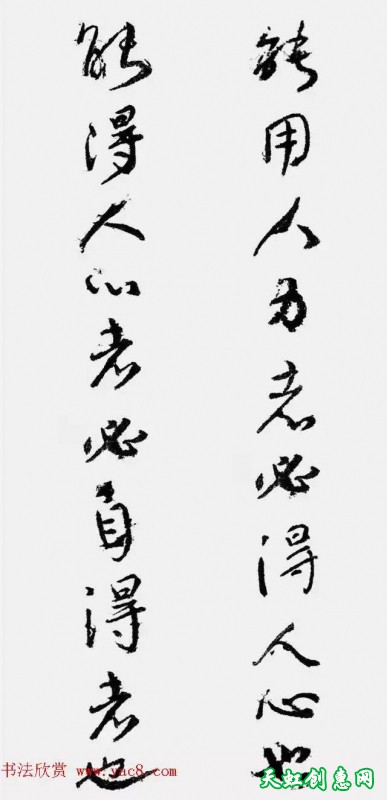 能用人力者必得人心也
能得人心者必自得者也
书法欣赏 www.yac8.com
天虹创意网